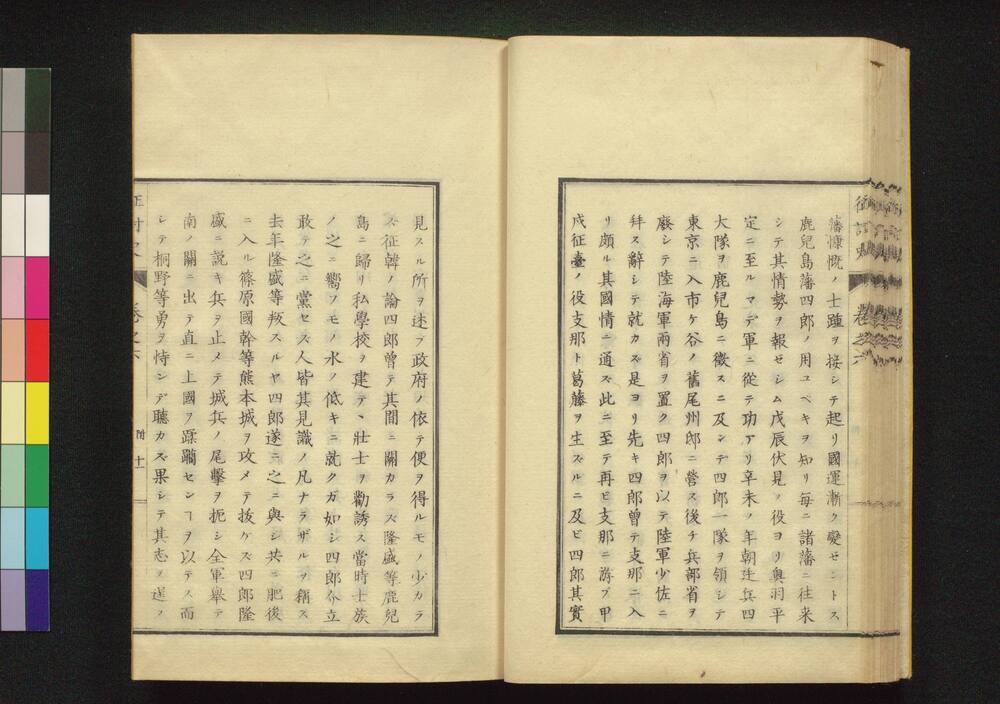 藩慷慨ノ士踵ヲ接シテ起リ國運漸ク變セントス
鹿兒島藩四郎ノ用ユベキヲ知リ毎ニ諸藩ニ往来
シテ其情勢ヲ報セシム戊辰伏見ノ役ヨリ奥羽平
定ニ至ルマデ軍ニ從テ功アリ辛未ノ年朝廷兵四
大隊ヲ鹿兒島ニ徴スニ及ンデ四郎一隊ヲ領シテ
東京ニ入市ヶ谷ノ舊尾州邸ニ營ス後チ兵部省ヲ
廢シテ陸海軍兩省ヲ置ク四郎ヲ以テ陸軍少佐ニ
拜ス辭シテ就カズ是ヨリ先キ四郎曾テ支那ニ入
リ頗ル其國情ニ通ズ此ニ至テ再ビ支那ニ游ブ甲
戌征臺ノ役支那ト葛藤ヲ生ズルニ及ビ四郎其實
見スル所ヲ述ブ政府ノ依テ便ヲ得ルモノ少カラ
ズ征韓ノ論四郎曾テ其間ニ關カラズ隆盛等鹿兒
島ニ歸リ私學校ヲ建テヽ壯士ヲ勸誘ス當時士族
ノ之ニ嚮フモノ水ノ低キニ就クガ如シ四郎介立
敢テ之ニ黨セズ人皆其見識ノ凡ナラザルヲ稱ス
去年隆盛等叛スルヤ四郎遂ニ之ニ與シ共ニ肥後
ニ入ル篠原國幹等熊本城ヲ攻メテ拔ケズ四郎隆
盛ニ説キ兵ヲ止メテ城兵ノ尾擊ヲ扼シ全軍舉テ
南ノ關ニ出テ直ニ上國ヲ蹂躙センヿヲ以テス而
シテ桐野等勇ヲ恃ンデ聽カズ果シテ其志ヲ逞フ
附 十一